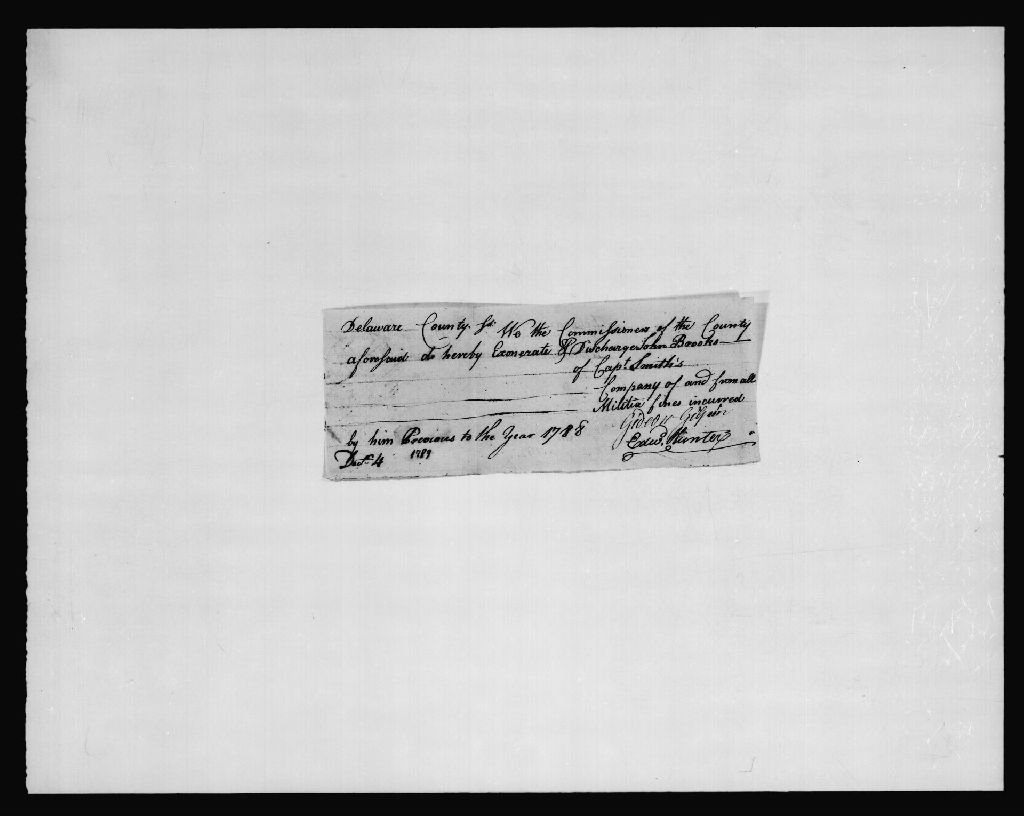 Delaware County Ss. We the Commissioners of the County
aforesaid do hereby Exonerate & Discharge John Brooks
of Capt. Smith's
Company of and from all
Militia fines incurred
by him Previous to the Year 1788
Gideon
Edwd. Hunter
Dect. 4 1789